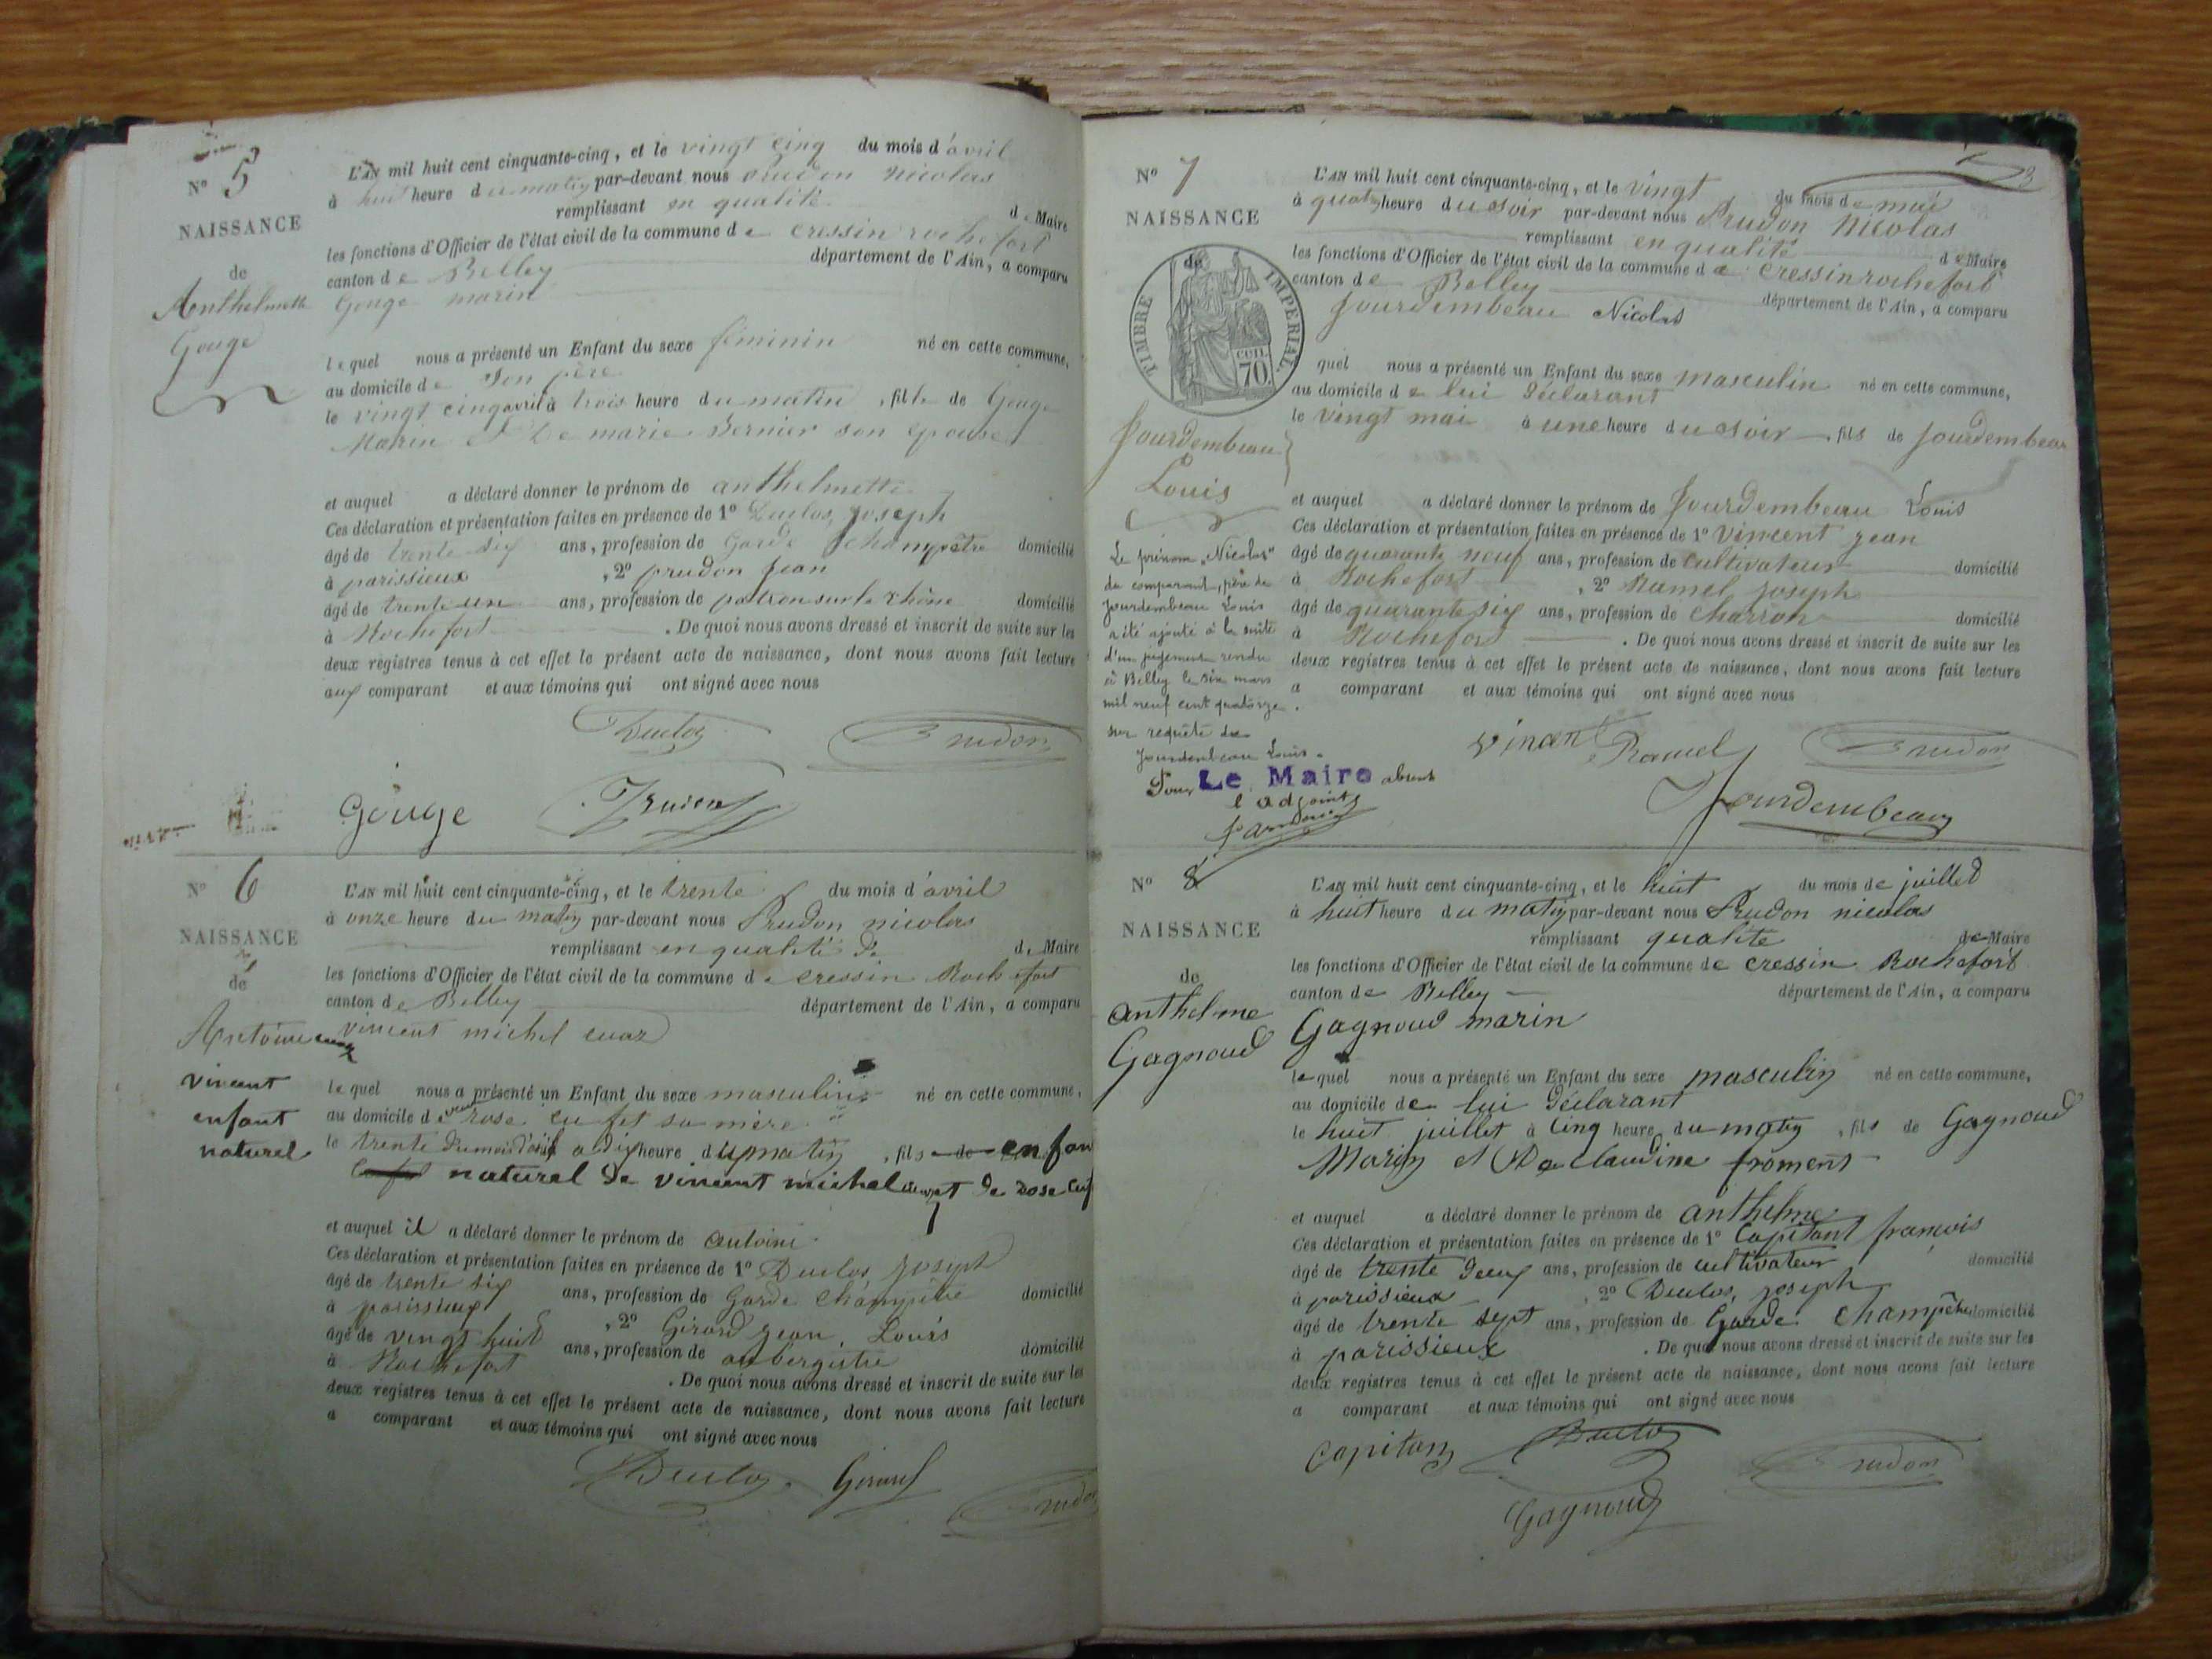 N° 5
NAISSANCE
de
Anthelmette
Gouge
L'AN mil huit cent cinquante-cinq, et le vingt cinq du mois d'avril
à huit heure du matin par-devant nous Prudon Nicolas
remplissant en qualité de Maire
les fonctions d'Officier de l'état civil de la commune de cressin rochefort
canton de Belley département de l'Ain, a comparu
Gouge marin
lequel nous a présenté un Enfant du sexe féminin né en cette commune,
au domicile de son père
le vingt cinq avril à trois heure du matin, fille de Gouge
Marin et De marie Bernier son epouse
et auquel a déclaré donner le prénom de anthelmette
Ces déclaration et présentation faites en présence de 1° Duclos, joseph
âgé de trente six ans, profession de Garde champêtre domicilié
à parissieux, 2° prudon jean
âgé de trente un ans, profession de patron sur le rhône domicilié
à Rochefort. De quoi nous avons dressé et inscrit de suite sur les
deux registres tenus à cet effet le présent acte de naissance, dont nous avons fait lecture
aux comparant et aux témoins qui ont signé avec nous
Duclos Prudon
Gouge Prudon
N° 6
NAISSANCE
de
Antoine cuaz
vincent
enfant
naturel
L'AN mil huit cent cinquante-cinq, et le trente du mois d'avril
à onze heure du matin par-devant nous Prudon nicolas
remplissant en qualité de de Maire
les fonctions d'Officier de l'état civil de la commune de cressin Rochefort
canton de Belley département de l'Ain, a comparu
vincent michel cuaz
lequel nous a présenté un Enfant du sexe masculin né en cette commune,
au domicile de rose sa mère
le trente du mois d'avril a dix heure du matin, fils de enfan
naturel de vincent michel cuaz et de rose
et auquel il a déclaré donner le prénom de antoine
Ces déclaration et présentation faites en présence de 1° Duclos joseph
âgé de trente six ans, profession de Garde champêtre domicilié
à parissieux, 2° Girard jean Louis
âgé de vingt huit ans, profession de aubergiste domicilié
à Rochefort. De quoi nous avons dressé et inscrit de suite sur les
deux registres tenus à cet effet le présent acte de naissance, dont nous avons fait lecture
a comparant et aux témoins qui ont signé avec nous
Duclos Girard Prudon
3
N° 7
NAISSANCE
de
TIMBRE IMPERIAL
CEN. 70.
Jourdembeau
Louis
Le prénom "Nicolas"
du comparant, père de
Jourdembeau Louis
a été ajouté à la suite
d'un jugement rendu
à Belley le six mars
mil neuf cent quatorze
sur requête de
Jourdembeau Louis.
Pour Le Maire absent
l'adjoint
L'AN mil huit cent cinquante-cinq, et le vingt du mois de mai
à quatre heure du soir par-devant nous Prudon Nicolas
remplissant en qualité de Maire
les fonctions d'Officier de l'état civil de la commune de cressin rochefort
canton de Belley département de l'Ain, a comparu
Jourdembeau Nicolas
quel nous a présenté un Enfant du sexe masculin né en cette commune,
au domicile de lui déclarant
le vingt mai à une heure du soir, fils de Jourdembeau
et auquel a déclaré donner le prénom de Jourdembeau Louis
Ces déclaration et présentation faites en présence de 1° Vincent jean
âgé de quarante neuf ans, profession de cultivateur domicilié
à Rochefort, 2° Ramel joseph
âgé de quarante six ans, profession de charron domicilié
à Rochefort. De quoi nous avons dressé et inscrit de suite sur les
deux registres tenus à cet effet le présent acte de naissance, dont nous avons fait lecture
a comparant et aux témoins qui ont signé avec nous.
Vincent Ramel Prudon
Jourdembeau
N° 8
NAISSANCE
de
anthelme
Gagnoud
L'AN mil huit cent cinquante-cinq, et le huit du mois de juillet
à huit heure du matin par-devant nous Prudon nicolas
remplissant qualité de Maire
les fonctions d'Officier de l'état civil de la commune de cressin Rochefort
canton de Belley département de l'Ain, a comparu
Gagnoud marin
lequel nous a présenté un Enfant du sexe masculin né en cette commune,
au domicile de lui déclarant
le huit juillet à cinq heure du matin, fils de Gagnoud
Marin et De claudine froment
et auquel a déclaré donner le prénom de anthelme
Ces déclaration et présentation faites en présence de 1° Capitant françois
âgé de trente deux ans, profession de cultivateur domicilié
à parissieux, 2° Duclos, joseph
âgé de trente sept ans, profession de Garde champêtre domicilié
à parissieux. De quoi nous avons dressé et inscrit de suite sur les
deux registres tenus à cet effet le présent acte de naissance, dont nous avons fait lecture
a comparant et aux témoins qui ont signé avec nous
Capitan Duclos Prudon
Gagnoud